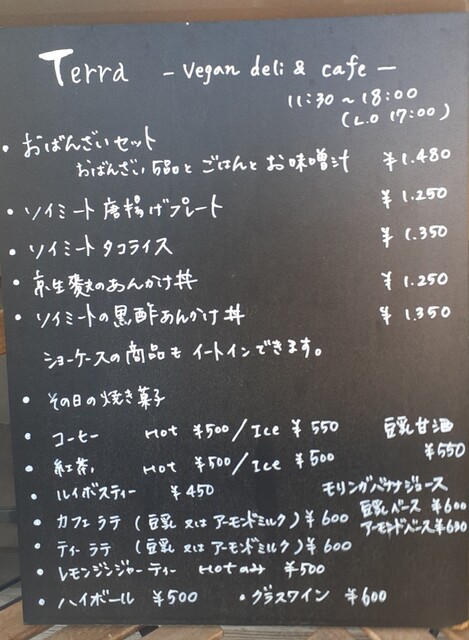 Terra - vegan deli & cafe -
11:30~18:00
(L.O 17:00)
・おばんざいセット
おばんざい5品とごはんとお味噌汁 ¥1.480
・ソイミート唐揚げプレート ¥1.250
・ソイミートタコライス ¥1.350
・京生麩のあんかけ丼 ¥1.250
・ソイミートの黒酢あんかけ丼 ¥1.350
ショーケースの商品もイートインできます。
・その日の焼き菓子
・コーヒー Hot ¥500/Ice ¥550 豆乳甘酒
¥550
・紅茶 Hot ¥500/Ice ¥500
・ルイボスティー ¥450 モリンガバナナジュース
豆乳ベース ¥600
・カフェラテ(豆乳又はアーモンドミルク)¥600 アーモンドベース¥690
・ティーラテ(豆乳又はアーモンドミルク)¥600
・レモンジンジャーティー Hotのみ ¥500
・ハイボール ¥500 ・グラスワイン ¥600